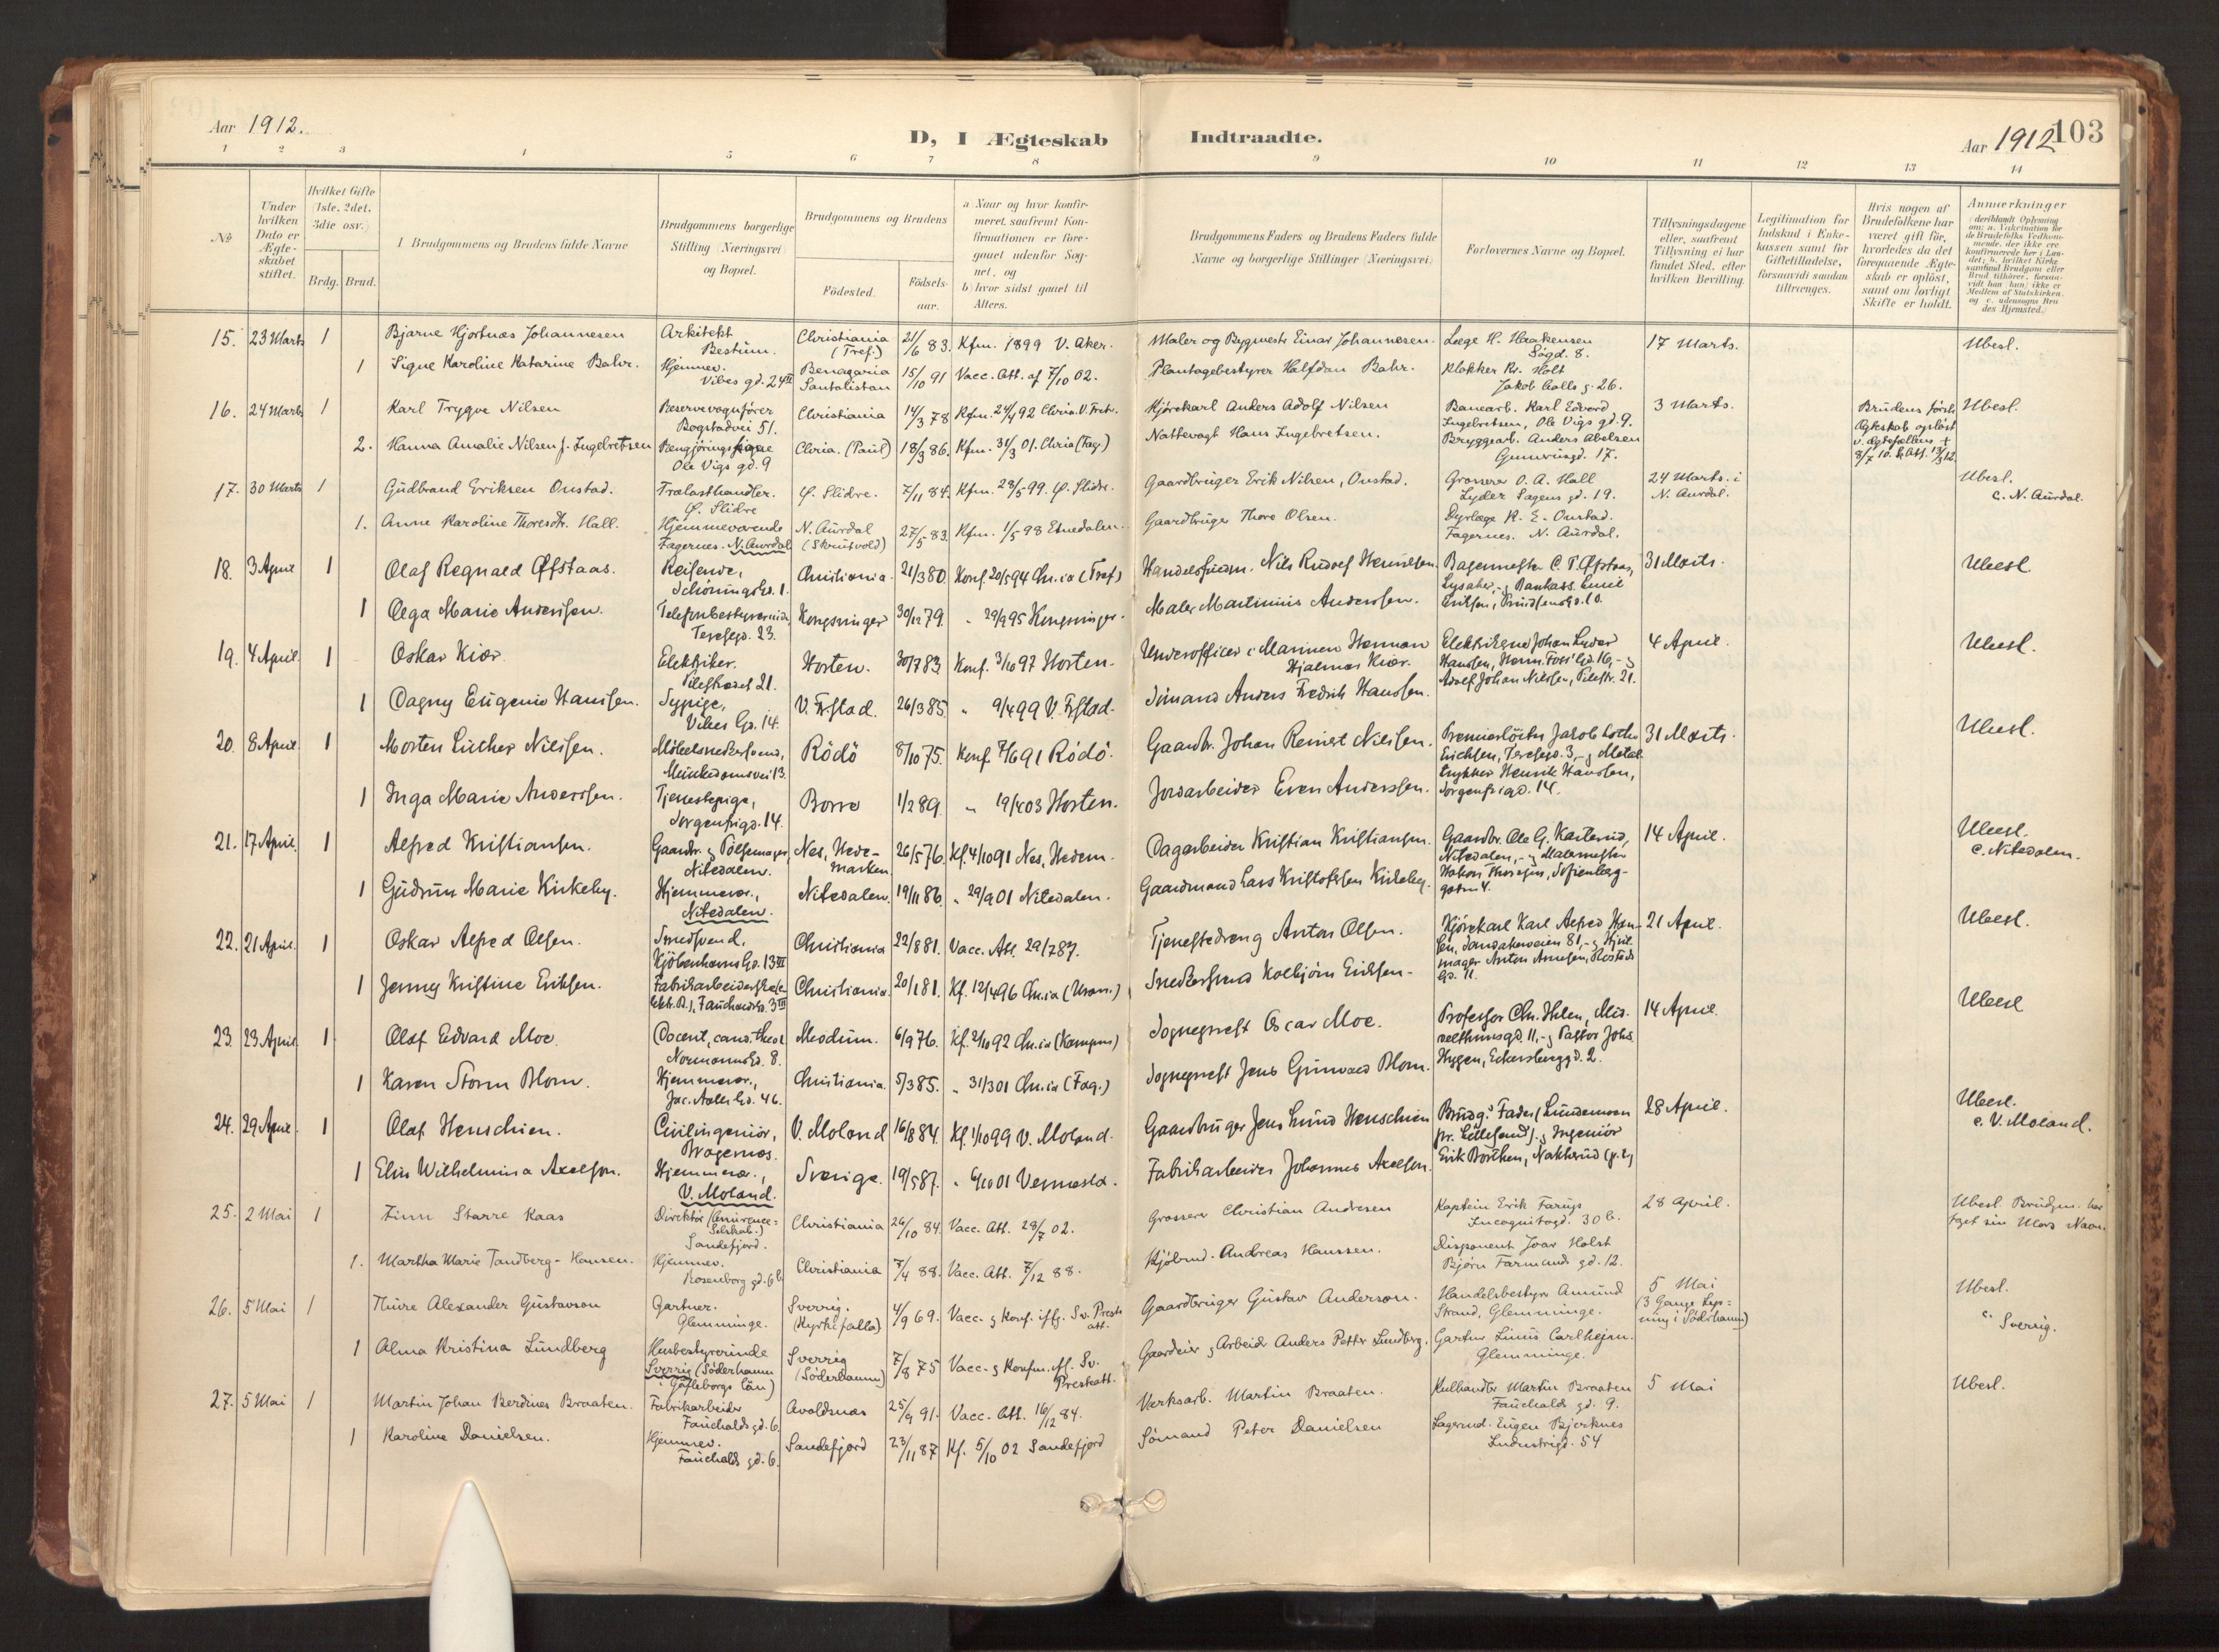 Aar 1912.
D, I Ægteskab Indtraadte.
Aar 1912
103
1 2 3 4 5 6 7 8 9 10 11 12 13 14
No
Under hvilken Dato er Ægteskabet stiftet.
Hvilket Gifte (1ste, 2det, 3die osv.)
Brdg. Brud.
I Brudgommens og Brudens fulde Navne
Brudgommens borgerlige Stilling (Næringsvei) og Bopæl.
Brudgommens og Brudens
Födested.
Födsels-aar.
a Naar og hvor konfirmeret, saafremt Konfirmationen er foregaaet udenfor Sognet, og
b) hvor sidst gaaet til Alters.
Brudgommens Faders og Brudens Faders fulde Navne og borgerlige Stillinger (Næringsvei)
Forlovernes Navne og Bopæl.
Tillysningsdagene eller, saafremt Tillysning ei har fundet Sted, efter hvilken Bevilling.
Legitimation for Indskud i Enkekassen samt for Giftetilladelse, forsaavidt saadan tiltrænges.
Hvis nogen af Brudefolkene har været gift før, hvorledes da det foregaaende Ægteskab er opløst, samt om lovligt Skifte er holdt.
Anmærkninger
15. 23 Marts 1 Bjarne Hjortnæs Johannesen Arkitekt Bestum. Christiania (Tref.) 21/6 83. Kfm. 1899 V. Aker. Maler og Bygmester Einar Johannesen. Læge H. Haakensen Sògd. 8. 17 Marts. Ubesl.
1 Signe Karoline Katarine Bahr. Hjemmev. Vibes gd. 24 II Benagaria Santalistan 15/10 91 Vacc. Att. af 7/10 02. Plantagebestyrer Halfdan Bahr. Klokker Kr. Holt Jakob Aalls g. 26.
16. 24 Marts 1 Karl Trygve Nilsen Reservevognfører Bogstadvei 51. Christiania 14/3 78 Kfm. 24/4 92 Chria. V. Fret. Kjörekarl Anders Adolf Nilsen Banearb. Karl Edvard Ingebretsen, Ole Vigs gd. 9. 3 Marts. Brudens første Ægteskab opløst v. Ægtefællens + 8/7 10. Ubesl.
2. Hanna Amalie Nilsen f. Ingebretsen Rengjöringspige Ole Vigs gd. 9 Chria. (Paul) 18/3 86. Kfm. 31/3 01. Chria (Fag.) Nattevagt Hans Ingebretsen. Bryggearb. Anders Abelsen 17.
17. 30 Marts 1 Gudbrand Eriksen Onstad. Trælasthandler. Ø. Slidre Ø. Slidre. 7/11 84. Kfm. 28/5 99. Ø. Slidre. Gaardbruger Erik Nilsen, Onstad. Grosserer O. A. Hall Lyder Sagens gd. 19. 24 Marts i N. Aurdal. Ubesl. c. N. Aurdal.
1. Anne Karoline Thoresdtr. Hall. Hjemmeværende Fagernes. N. Aurdal N. Aurdal (Skrutvold) 27/5 83. Kfm. 1/5 98 Etnedalen. Gaardbruger Thore Olsen. Dyrlæge K. E. Onstad. Fagernes. N. Aurdal.
18. 3 April 1 Olaf Regnald Øfstaas. Reisende, Schöningsgd. 1. Christiania. 21/3 80. Konf. 20/5 94 Chr.ia (Tref.) Nils Rudolf Bagermester C. T. Øfstaas, Lysaker, Emil Eriksen, 10. 31 Marts. Ubesl.
1 Olga Marie Anderssen. Telefonbestyrerinde Teresegd. 23. Kongsvinger 30/12 79. " 29/9 95 Kongsvinger. Maler Martinius Anderssen.
19. 4 April. 1 Oskar Kiær. Elektriker. Pilestrædet 21. Horten. 30/7 83 Konf. 3/10 97 Horten. Underofficer i Marinen Herman Hjalmar Kiær. Johan Lyder Hanssen, Herm. Foss' Gd. 16, og Adolf Johan Nilssen, Pilestr. 21. 4 April. Ubesl.
1 Dagny Eugenie Hanssen. Sypige, Vibes Gd. 14. V. Fr.stad. 26/3 85 " 9/4 99 V. Fr.stad. Sömand Anders Fredrik Hanssen.
20. 8 April 1 Morten Luther Nilssen. Möbelsnekkersvend, Munkedamsvei 13. Rödö 8/10 75. Konf. 7/6 91 Rödö. Gaardbr. Johan Reinert Nilssen. Premierlöitn. Jakob Eriksen, Teresegd. 3, og Metaltrykker Henrik Hanssen, Sorgenfrigd. 14. 31 Marts. Ubesl.
1 Inga Marie Anderssen. Tjenestepige, Sorgenfrigd. 14. Borre 1/2 89. " 19/4 03 Horten. Jordarbeider Even Anderssen.
21. 17 April. 1 Alfred Kristiansen. Gaardbr. og Pölsemager, Nitedalen. Nes, Hedemarken 26/5 76. Kf. 4/10 91 Nes, Hedem. Dagarbeider Kristian Kristiansen. Gaardbr. Ole G. Nitedalen, og Malermester Sofienberggaten 4. 14 April. Ubesl. c. Nitedalen.
1 Gudrun Marie Kirkeby. Hjemmevær., Nitedalen. Nitedalen. 19/11 86. " 29/9 01 Nitedalen. Gaardmand Lars Kristofersen Kirkeby.
22. 21 April. 1 Oskar Alfred Olsen. Smedsvend, Kjöbenhavns Gd. 13 III Christiania 22/8 81. Vacc. Att. 29/7 87. Tjenestedreng Anton Olsen. Kjörekarl Karl Alfred Hansen, Sandakerveien 81, og Anton Arnesen, 11. 21 April. Ubesl.
1 Jenny Kristine Eriksen. Fabrikarbeiderske, Fauchaldsgd. 3 III Christiania. 20/1 81. Kf. 12/4 96 Chr.ia (Uran.) Snekkersvend Kolbjörn Eriksen.
23. 23 April 1 Olaf Edvard Moe. Docent, cand. theol. Normannsgd. 8. Modum. 6/9 76. Kf. 2/10 92 Chr.ia (Kampen) Sogneprest Oscar Moe. Professor Chr. Ihlen, Middelthunsgd. 11, og Pastor Johs. Hygen, Eckersberggd. 2. 14 April. Ubesl
1 Karen Storm Blom. Hjemmevær., Jac. Aalls Gd. 46. Christiania. 5/3 85. " 31/3 01 Chr.ia (Fag.) Sogneprest Jens Grinvald Blom.
24. 29 April. 1 Olaf Henschien. Civilingeniör, Bragernæs. V. Moland 16/8 84. Kf. 1/10 99 V. Moland. Gaardbruger Jens Lund Henschien Brudg.s Fader (Lundemoen pr. Lillesand) og Ingeniör Erik Borchen, Nakkerud 28 April. Ubesl. c. V. Moland.
1 Elin Wilhelmina Axelson. Hjemmevær., V. Moland. Sverige. 19/5 87. " 6/10 01 Vennesla. Fabrikarbeider Johannes Axelson.
25. 2 Mai 1 Finn Starre Kaas Direktör (Assurance-Selskab.) Sandefjord. Christiania 26/10 84. Vacc. Att. 28/7 02. Grosserer Christian Andresen Kaptein Erik Farup Incognitogd. 30 b. 28 April. Ubesl. Brudgm. har taget sin Mors Navn.
1. Martha Marie Tandberg-Hansen. Hjemmev. Rosenborg gd. 6 b Christiania 7/4 88. Vacc. Att. 7/12 88. Kjöbmd. Andreas Hanssen. Disponent Ivar Holst Bjørn Farmands gd. 12.
26. 5 Mai 1 Thure Alexander Gustavson Gartner. Glemminge. Sverrig. (Kyrkefalla) 4/9 69. Vacc. og Konf. iflg. Sv. Prest att. Gaardbruger Gustav Anderson. Handelsbestyr Amund Strand, Glemminge. 5 Mai (3 Gange Lysning i Söderhamn) Ubesl. c. Sverrig.
1 Alma Kristina Lundberg Husbestyrerinde Sverrig (Söderhamn i Gäfleborgs län) Sverrig (Söderhamn) 7/8 75 Vacc. og Konfm. ifl. Sv. Presteatt. Gaardeier og Arbeider Anders Petter Lundberg. Gartner Linus Carlhejm. Glemminge.
27. 5 Mai 1 Martin Johan Berdines Braaten. Fabrikarbeider Fauchalds gd. 6. Avaldsnæs 25/9 91. Vacc. Att. 16/12 84. Verksarb. Martin Braaten. Kulhandler Martin Braaten Fauchalds gd. 9. 5 Mai Ubesl.
1 Karoline Danielsen. Hjemmev. Fauchalds gd. 6. Sandefjord 23/11 87 Kf. 5/10 02 Sandefjord Sömand Peter Danielsen Lagermd. Eugen Bjerknes Industrigd. 54